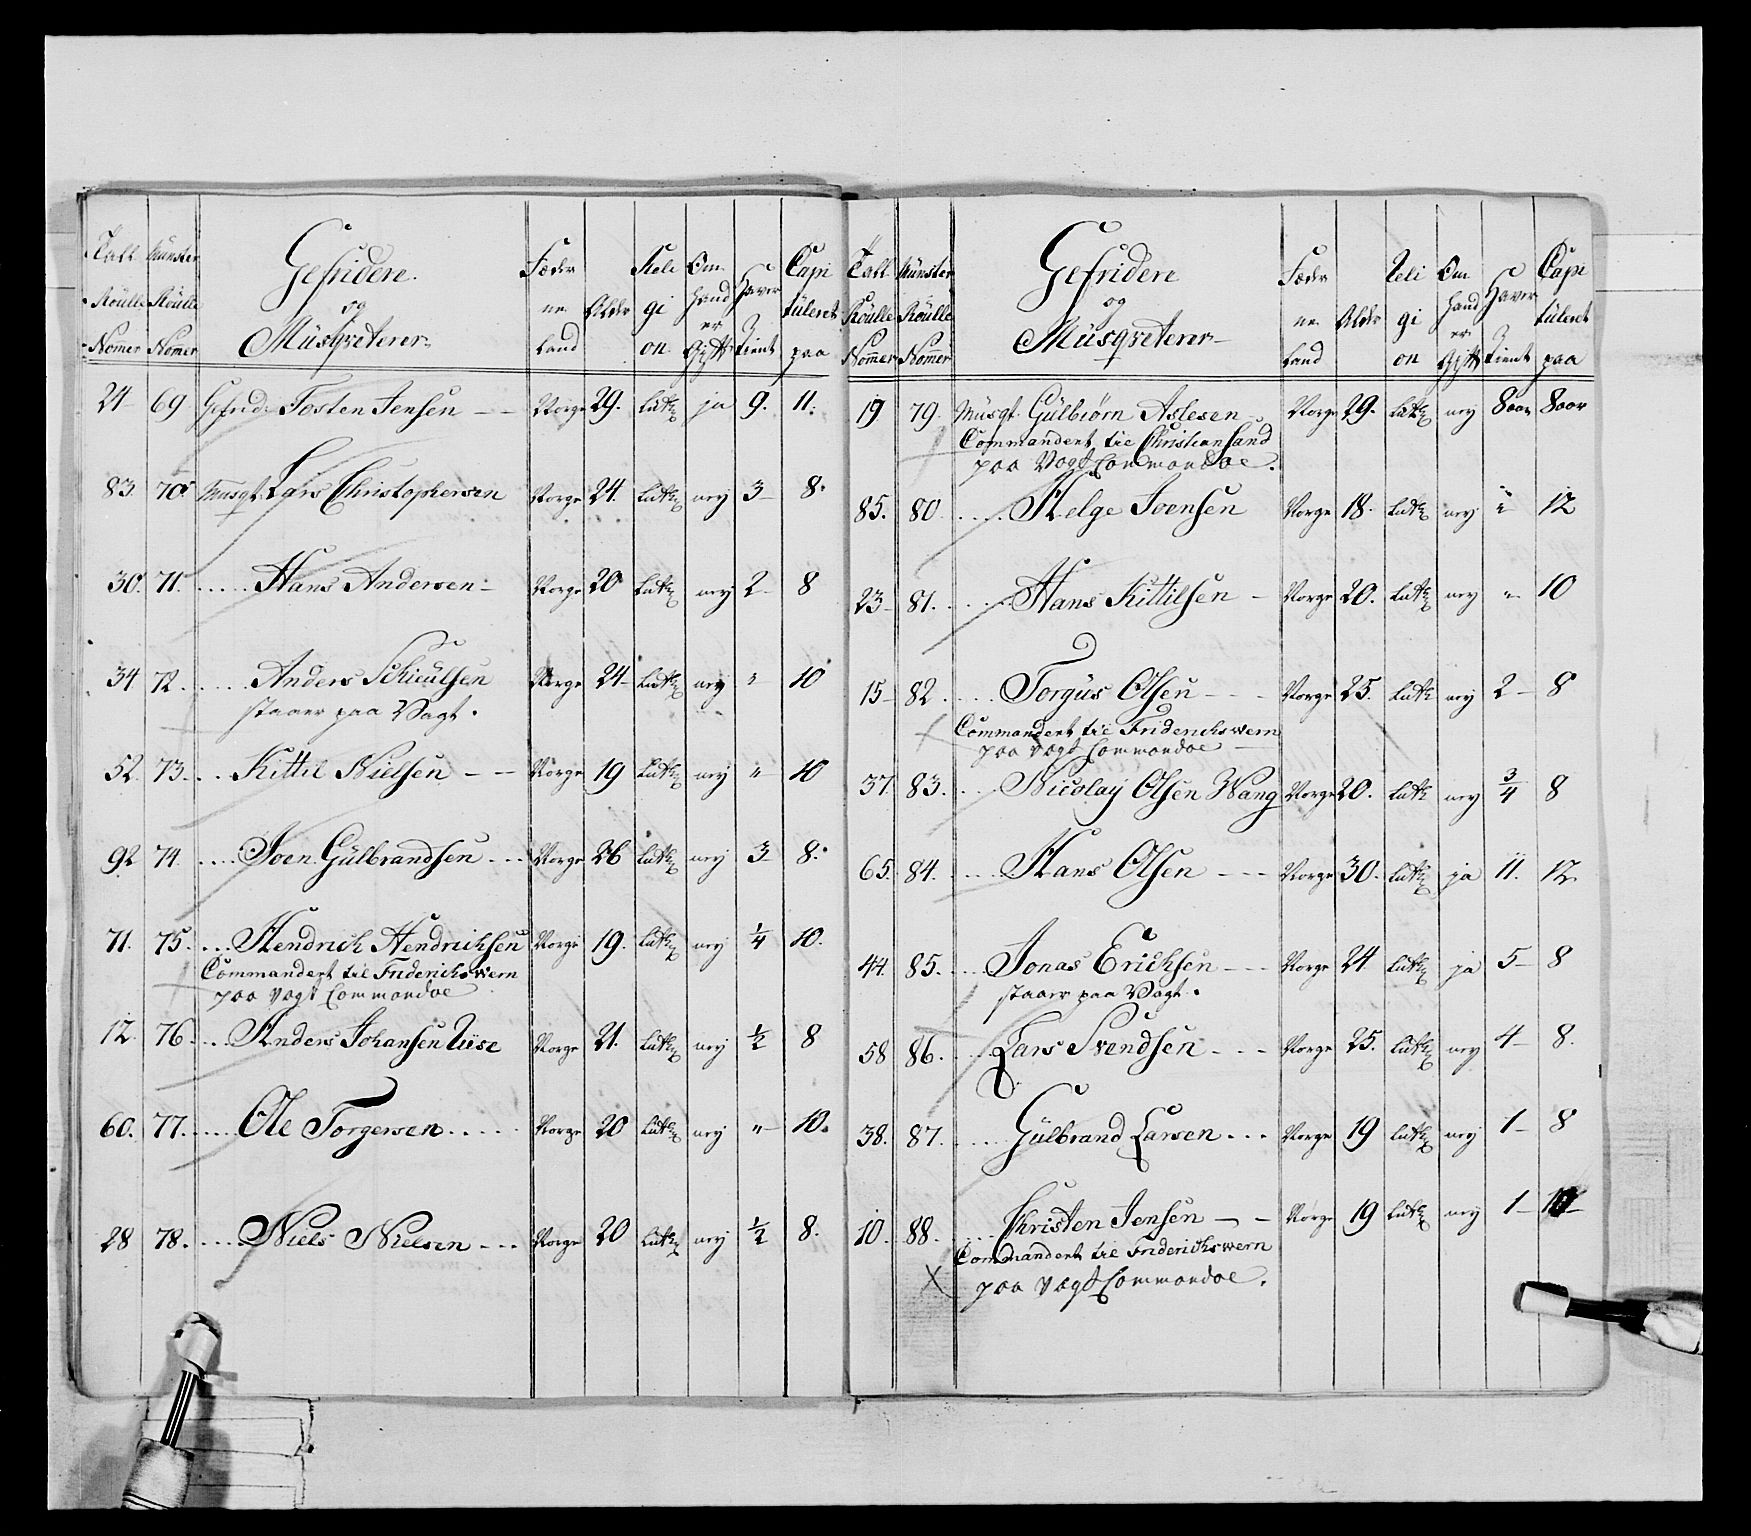 Tall Roulle Nomer | Munster Roulle Nomer | Gefridere og Müsqveterer | Fæderne land | Alder | Religion | Om hand er Gift | Haver tient | Capituleret paa
24 69 Gefrid: Tosten Jensen - - Norge 29. luth ja 9. 11.
83. 70. Musqt. Lars Christophersen Norge 24. luth ney 3 8.
30. 71. Hans Andersen - Norge 20 luth ney 2 8
34 72. Anders Schieülsen Norge 24 luth ney " 10
staaer paa Vagt.
52. 73. Kittil Nielsen - - Norge 19 luth ney " 10
92 74. Joen Gülbrandsen Norge 26 luth ney 3 8.
71. 75. Hendrich Hendrichsen Norge 19. luth ney 1/4 10.
Commandert til Friderichswern
paa Vagt Commandoe
12. 76. Anders Johansen Norge 21. luth ney 1/2 8
60. 77. Ole Torgersen Norge 20 luth ney " 10.
28 78. Niels Nielsen Norge 20 luth ney 1/2 8.
Tall Roulle Nomer | Munster Roulle Nomer | Gefridere og Müsqveterer | Fæderne land | Alder | Religion | Om hand er Gift | Haver tient | Capituleret paa
19 79. Müsqt. Gülbiörn Aslesen Norge 29. luth ney 8 aar 8 aar
Commandert til Christiansand
paa Vagt Commandoe.
85. 80. Helge Joensen Norge 18. luth ney 12
23 81. Hans Kittilsen - Norge 20. luth ney " 10
15 82. Torgüs Olsen - - - Norge 25. luth ney 2 8
Commandert til Friderichswern
paa Vagt Commandoe
37. 83. Nicolay Olsen Wang Norge 20. luth ney 3/4 8
65. 84. Hans Olsen - - - Norge 30. luth ja 11. 12.
44. 85. Jonas Erichsen - - - Norge 24 luth ja 5 8
staaer paa Vagt.
58 86. Lars Svendsen - - - Norge 25. luth ney 4 8.
38. 87. Gülbrand Larsen Norge 19 luth ney 1 8
10. 88. Christen Jensen - - Norge 19 luth ney 1
Commandert til Friderichswern
paa Vagt Commandoe.